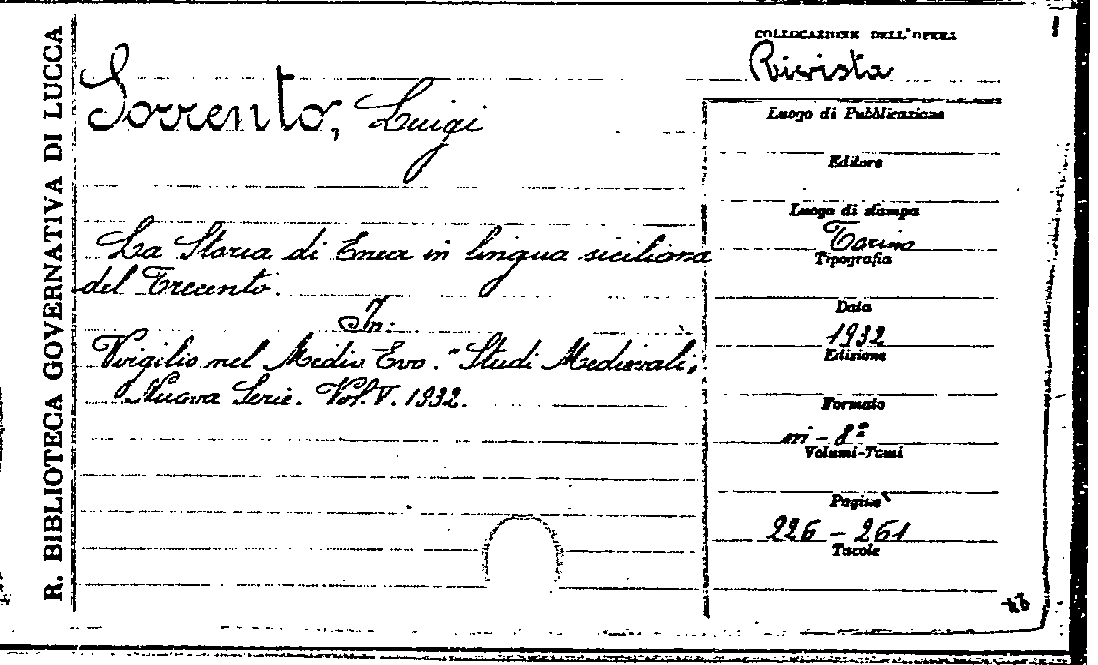 R. BIBLIOTECA GOVERNATIVA DI LUCCA
Sorrento, Luigi
La Storia di Enea in lingua siciliana
del Trecento.
In:
Virgilio nel Medio Evo. "Studi Medievali",
Nuova Serie. Vol. V. 1932.
COLLOCAZIONE DELL'OPERA
Rivista
Luogo di Pubblicazione
Editore
Luogo di stampa
Torino
Tipografia
Data
1932
Edizione
Formato
in-8º
Volumi-Tomi
Pagine
226 - 261
Tavole